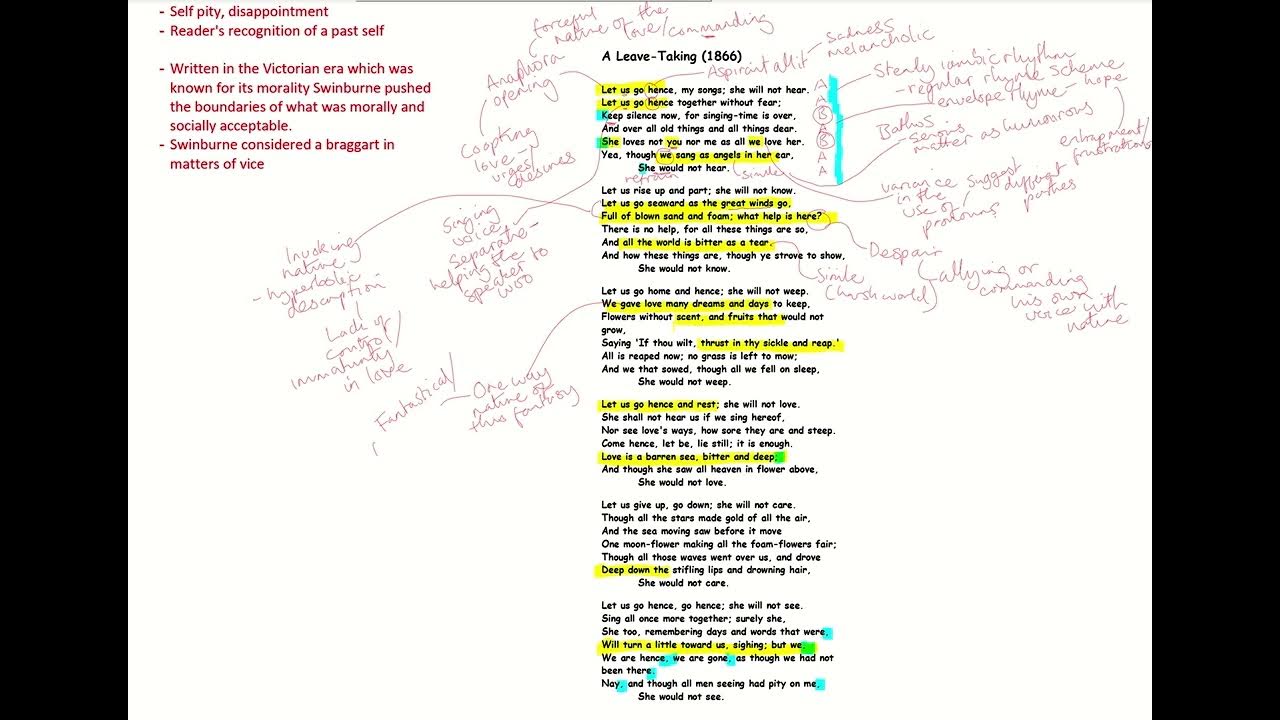 - Self pity, disappointment
- Reader's recognition of a past self
- Written in the Victorian era which was
known for its morality Swinburne pushed
the boundaries of what was morally and
socially acceptable.
- Swinburne considered a braggart in
matters of vice
forceful
nature of the
love/commanding
Anaphora
opening
Coopting
love -
urges/
desires
Singing
voice
separate -
helping the
speaker to
woo
Invoking
nature -
- hyperbolic
description
Lack of
control/
immaturity
in love
Fantastical/
One way
nature of
this fantasy
A Leave-Taking (1866)
Let us go hence, my songs; she will not hear.
Let us go hence together without fear;
Keep silence now, for singing-time is over,
And over all old things and all things dear.
She loves not you nor me as all we love her.
Yea, though we sang as angels in her ear,
She would not hear.
refrain
simile
Let us rise up and part; she will not know.
Let us go seaward as the great winds go,
Full of blown sand and foam; what help is here?
There is no help, for all these things are so,
And all the world is bitter as a tear.
And how these things are, though ye strove to show,
She would not know.
Let us go home and hence; she will not weep.
We gave love many dreams and days to keep,
Flowers without scent, and fruits that would not
grow,
Saying 'If thou wilt, thrust in thy sickle and reap.'
All is reaped now; no grass is left to mow;
And we that sowed, though all we fell on sleep,
She would not weep.
Let us go hence and rest; she will not love.
She shall not hear us if we sing hereof,
Nor see love's ways, how sore they are and steep.
Come hence, let be, lie still; it is enough.
Love is a barren sea, bitter and deep;
And though she saw all heaven in flower above,
She would not love.
Let us give up, go down; she will not care.
Though all the stars made gold of all the air,
And the sea moving saw before it move
One moon-flower making all the foam-flowers fair;
Though all those waves went over us, and drove
Deep down the stifling lips and drowning hair,
She would not care.
Let us go hence, go hence; she will not see.
Sing all once more together; surely she,
She too, remembering days and words that were,
Will turn a little toward us, sighing; but we,
We are hence, we are gone, as though we had not
been there.
Nay, and though all men seeing had pity on me,
She would not see.
Aspirant allit -
Sadness
melancholic
A
A
B
A
B
A
A
Steady iambic rhythm
- regular rhyme scheme
envelope rhyme -
hope
entrapment/
frustrations
Bathos -
serious
matter as humorous
variance
in the
use of
pronouns
suggest
different
parties
Despair
Simile
(harsh world)
allying or
commanding
his own
voice with
nature